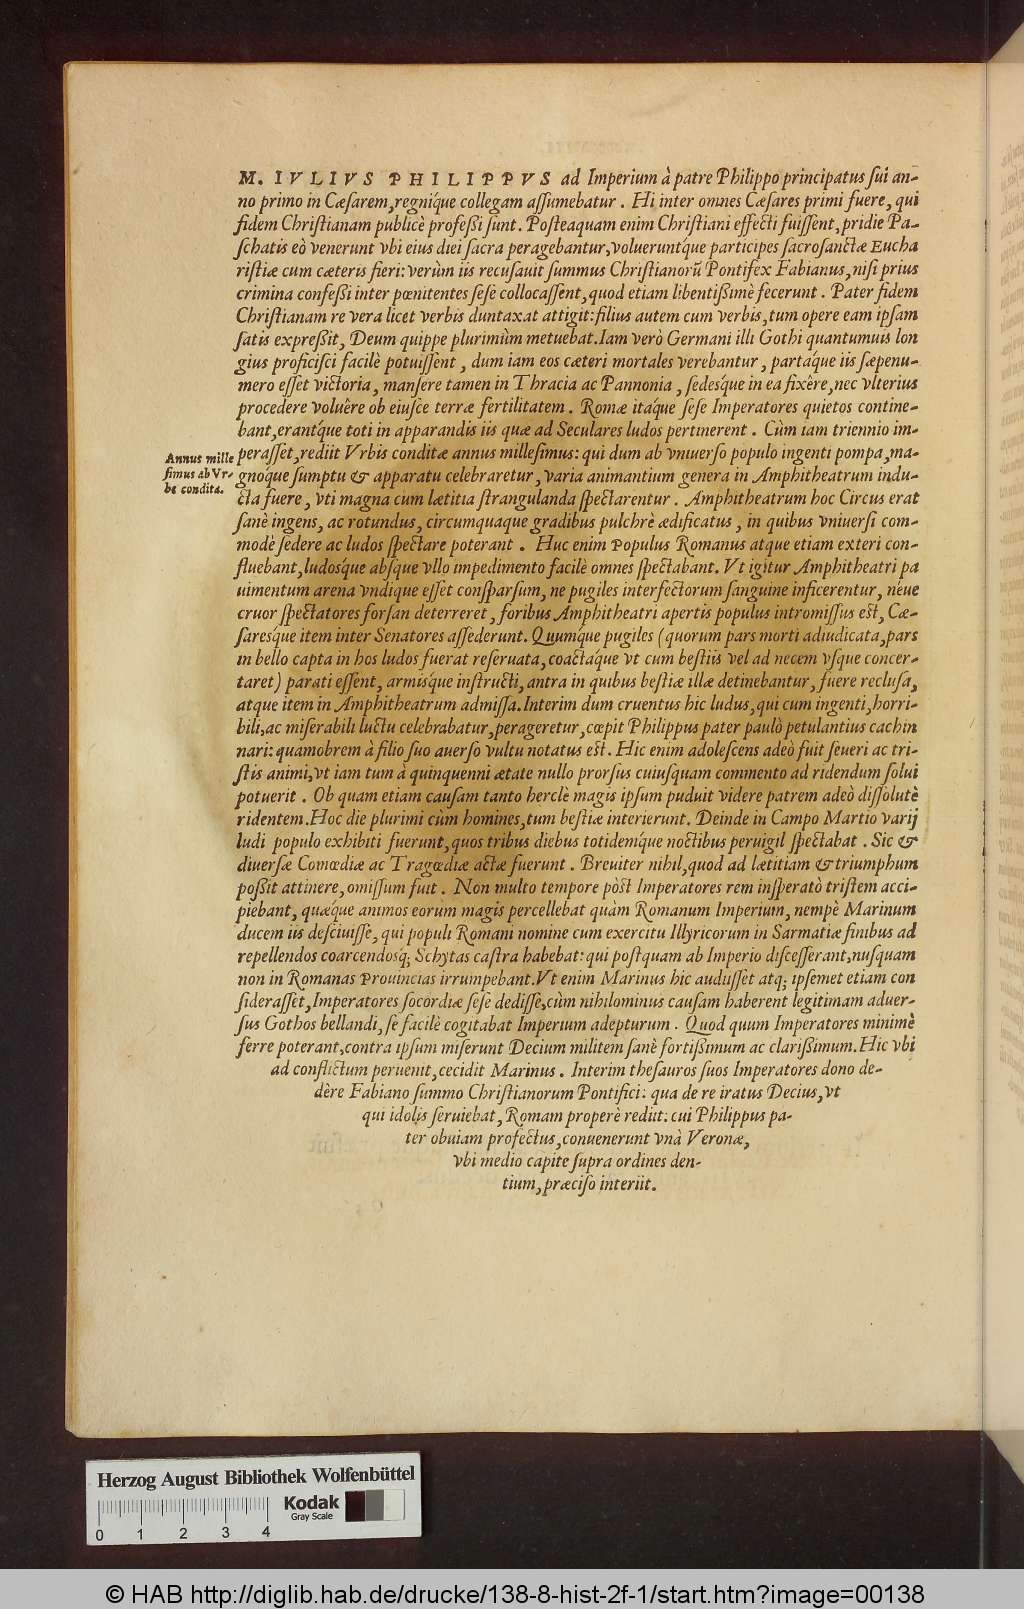 M. IVLIVS PHILIPPVS ad Imperium à patre Philippo principatus ſui an-
no primo in Cæſarem, regniq́ue collegam aſſumebatur. Hi inter omnes Cæſares primi fuere, qui
fidem Chriſtianam publicè profeſſi ſunt. Poſteaquam enim Chriſtiani effecti fuiſſent, pridie Pa-
ſchatis eò venerunt vbi eius diei ſacra peragebantur, volueruntq́ue participes ſacroſanctæ Eucha
riſtiæ cum cæteris fieri: verùm iis recuſauit ſummus Chriſtianorũ Pontifex Fabianus, niſi prius
crimina confeſſi inter pœnitentes ſeſe collocaſſent, quod etiam libentißimè fecerunt. Pater fidem
Chriſtianam re vera licet verbis duntaxat attigit: filius autem cum verbis, tum opere eam ipſam
ſatis expreßit, Deum quippe plurimùm metuebat. Iam verò Germani illi Gothi quantumuis lon
gius proficiſci facilè potuiſſent, dum iam eos cæteri mortales verebantur, partaq́ue iis ſæpenu-
mero eſſet victoria, manſere tamen in Thracia ac Pannonia, ſedesq́ue in ea fixêre, nec vlterius
procedere voluêre ob eiuſce terræ fertilitatem. Romæ itaq́ue ſeſe Imperatores quietos contine-
bant, erantq́ue toti in apparandis iis quæ ad Seculares ludos pertinerent. Cùm iam triennio im-
peraſſet, rediit Vrbis conditæ annus milleſimus: qui dum ab vniuerſo populo ingenti pompa, ma-
gnoque ſumptu & apparatu celebraretur, varia animantium genera in Amphitheatrum indu-
cta fuere, vti magna cum lætitia ſtrangulanda ſpectarentur. Amphitheatrum hoc Circus erat
ſanè ingens, ac rotundus, circumquaque gradibus pulchrè ædificatus, in quibus vniuerſi com-
modè ſedere ac ludos ſpectare poterant. Huc enim Populus Romanus atque etiam exteri con-
fluebant, ludosq́ue abſque vllo impedimento facilè omnes ſpectabant. Vt igitur Amphitheatri pa
uimentum arena vndique eſſet conſparſum, ne pugiles interfectorum ſanguine inficerentur, néue
cruor ſpectatores forſan deterreret, foribus Amphitheatri apertis populus intromiſſus eſt, Cæ-
ſaresque item inter Senatores aſſederunt. Quumq́ue pugiles (quorum pars morti adiudicata, pars
in bello capta in hos ludos fuerat reſeruata, coactaq́ue vt cum beſtiis vel ad necem vſque concer-
taret) parati eſſent, armisq́ue inſtructi, antra in quibus beſtiæ illæ detinebantur, fuere recluſa,
atque item in Amphitheatrum admiſſa. Interim dum cruentus hic ludus, qui cum ingenti, horri-
bili, ac miſerabili luctu celebrabatur, perageretur, cœpit Philippus pater paulò petulantius cachin
nari: quamobrem à filio ſuo auerſo vultu notatus eſt. Hic enim adoleſcens adeò fuit ſeueri ac tri-
ſtis animi, vt iam tum à quinquenni ætate nullo prorſus cuiuſquam commento ad ridendum ſolui
potuerit. Ob quam etiam cauſam tanto herclè magis ipſum puduit videre patrem adeò diſſolutè
ridentem. Hoc die plurimi cùm homines, tum beſtiæ interierunt. Deinde in Campo Martio varij
ludi populo exhibiti fuerunt, quos tribus diebus totidemq́ue noctibus peruigil ſpectabat. Sic &
diuerſæ Comœdiæ ac Tragœdiæ actæ fuerunt. Breuiter nihil, quod ad lætitiam & triumphum
poßit attinere, omiſſum fuit. Non multo tempore pòſt Imperatores rem inſperatò triſtem acci-
piebant, quæq́ue animos eorum magis percellebat quàm Romanum Imperium, nempè Marinum
ducem iis deſciuiſſe, qui populi Romani nomine cum exercitu Illyricorum in Sarmatiæ finibus ad
repellendos coarcendosq́; Schytas caſtra habebat: qui poſtquam ab Imperio diſceſſerant, nuſquam
non in Romanas Prouincias irrumpebant. Vt enim Marinus hic audiiſſet atq; ipſemet etiam con
ſideraſſet, Imperatores ſocordiæ ſeſe dediſſe, cùm nihilominus cauſam haberent legitimam aduer-
ſus Gothos bellandi, ſe facilè cogitabat Imperium adepturum. Quod quum Imperatores minimè
ferre poterant, contra ipſum miſerunt Decium militem ſanè fortißimum ac clarißimum. Hic vbi
ad conflictum peruenit, cecidit Marinus. Interim theſauros ſuos Imperatores dono de-
dère Fabiano ſummo Chriſtianorum Pontifici: qua de re iratus Decius, vt
qui idolis ſeruiebat, Romam properè rediit: cui Philippus pa-
ter obuiam profectus, conuenerunt vnà Veronæ,
vbi medio capite ſupra ordines den-
tium, præciſo interiit.
Annus mille
ſimus ab Vr-
be condita.
Herzog August Bibliothek Wolfenbüttel
0 1 2 3 4
Kodak
Gray Scale
© HAB http://diglib.hab.de/drucke/138-8-hist-2f-1/start.htm?image=00138